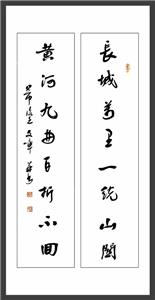 長城萬里一統山關
黃河九曲百折不回